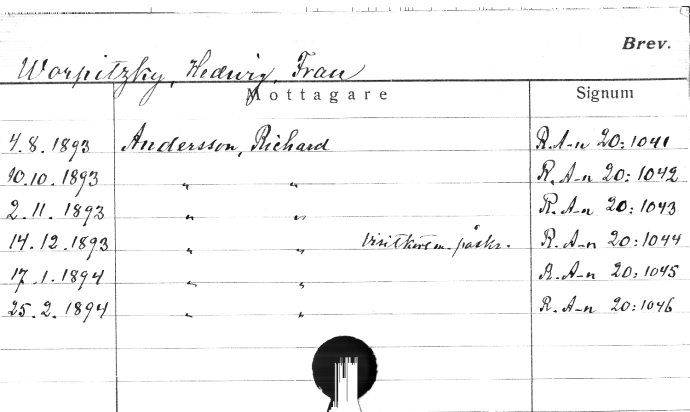 Brev.
Worpitzky, Hedwig, Frau
Mottagare Signum
4.8.1893 Andersson, Richard R.A-n 20:1041
10.10.1893 " " R.A-n 20:1042
2.11.1893 " " R.A-n 20:1043
14.12.1893 " " Visitkort m. påskr. R.A-n 20:1044
17.1.1894 " " R.A-n 20:1045
25.2.1894 " " R.A-n 20:1046